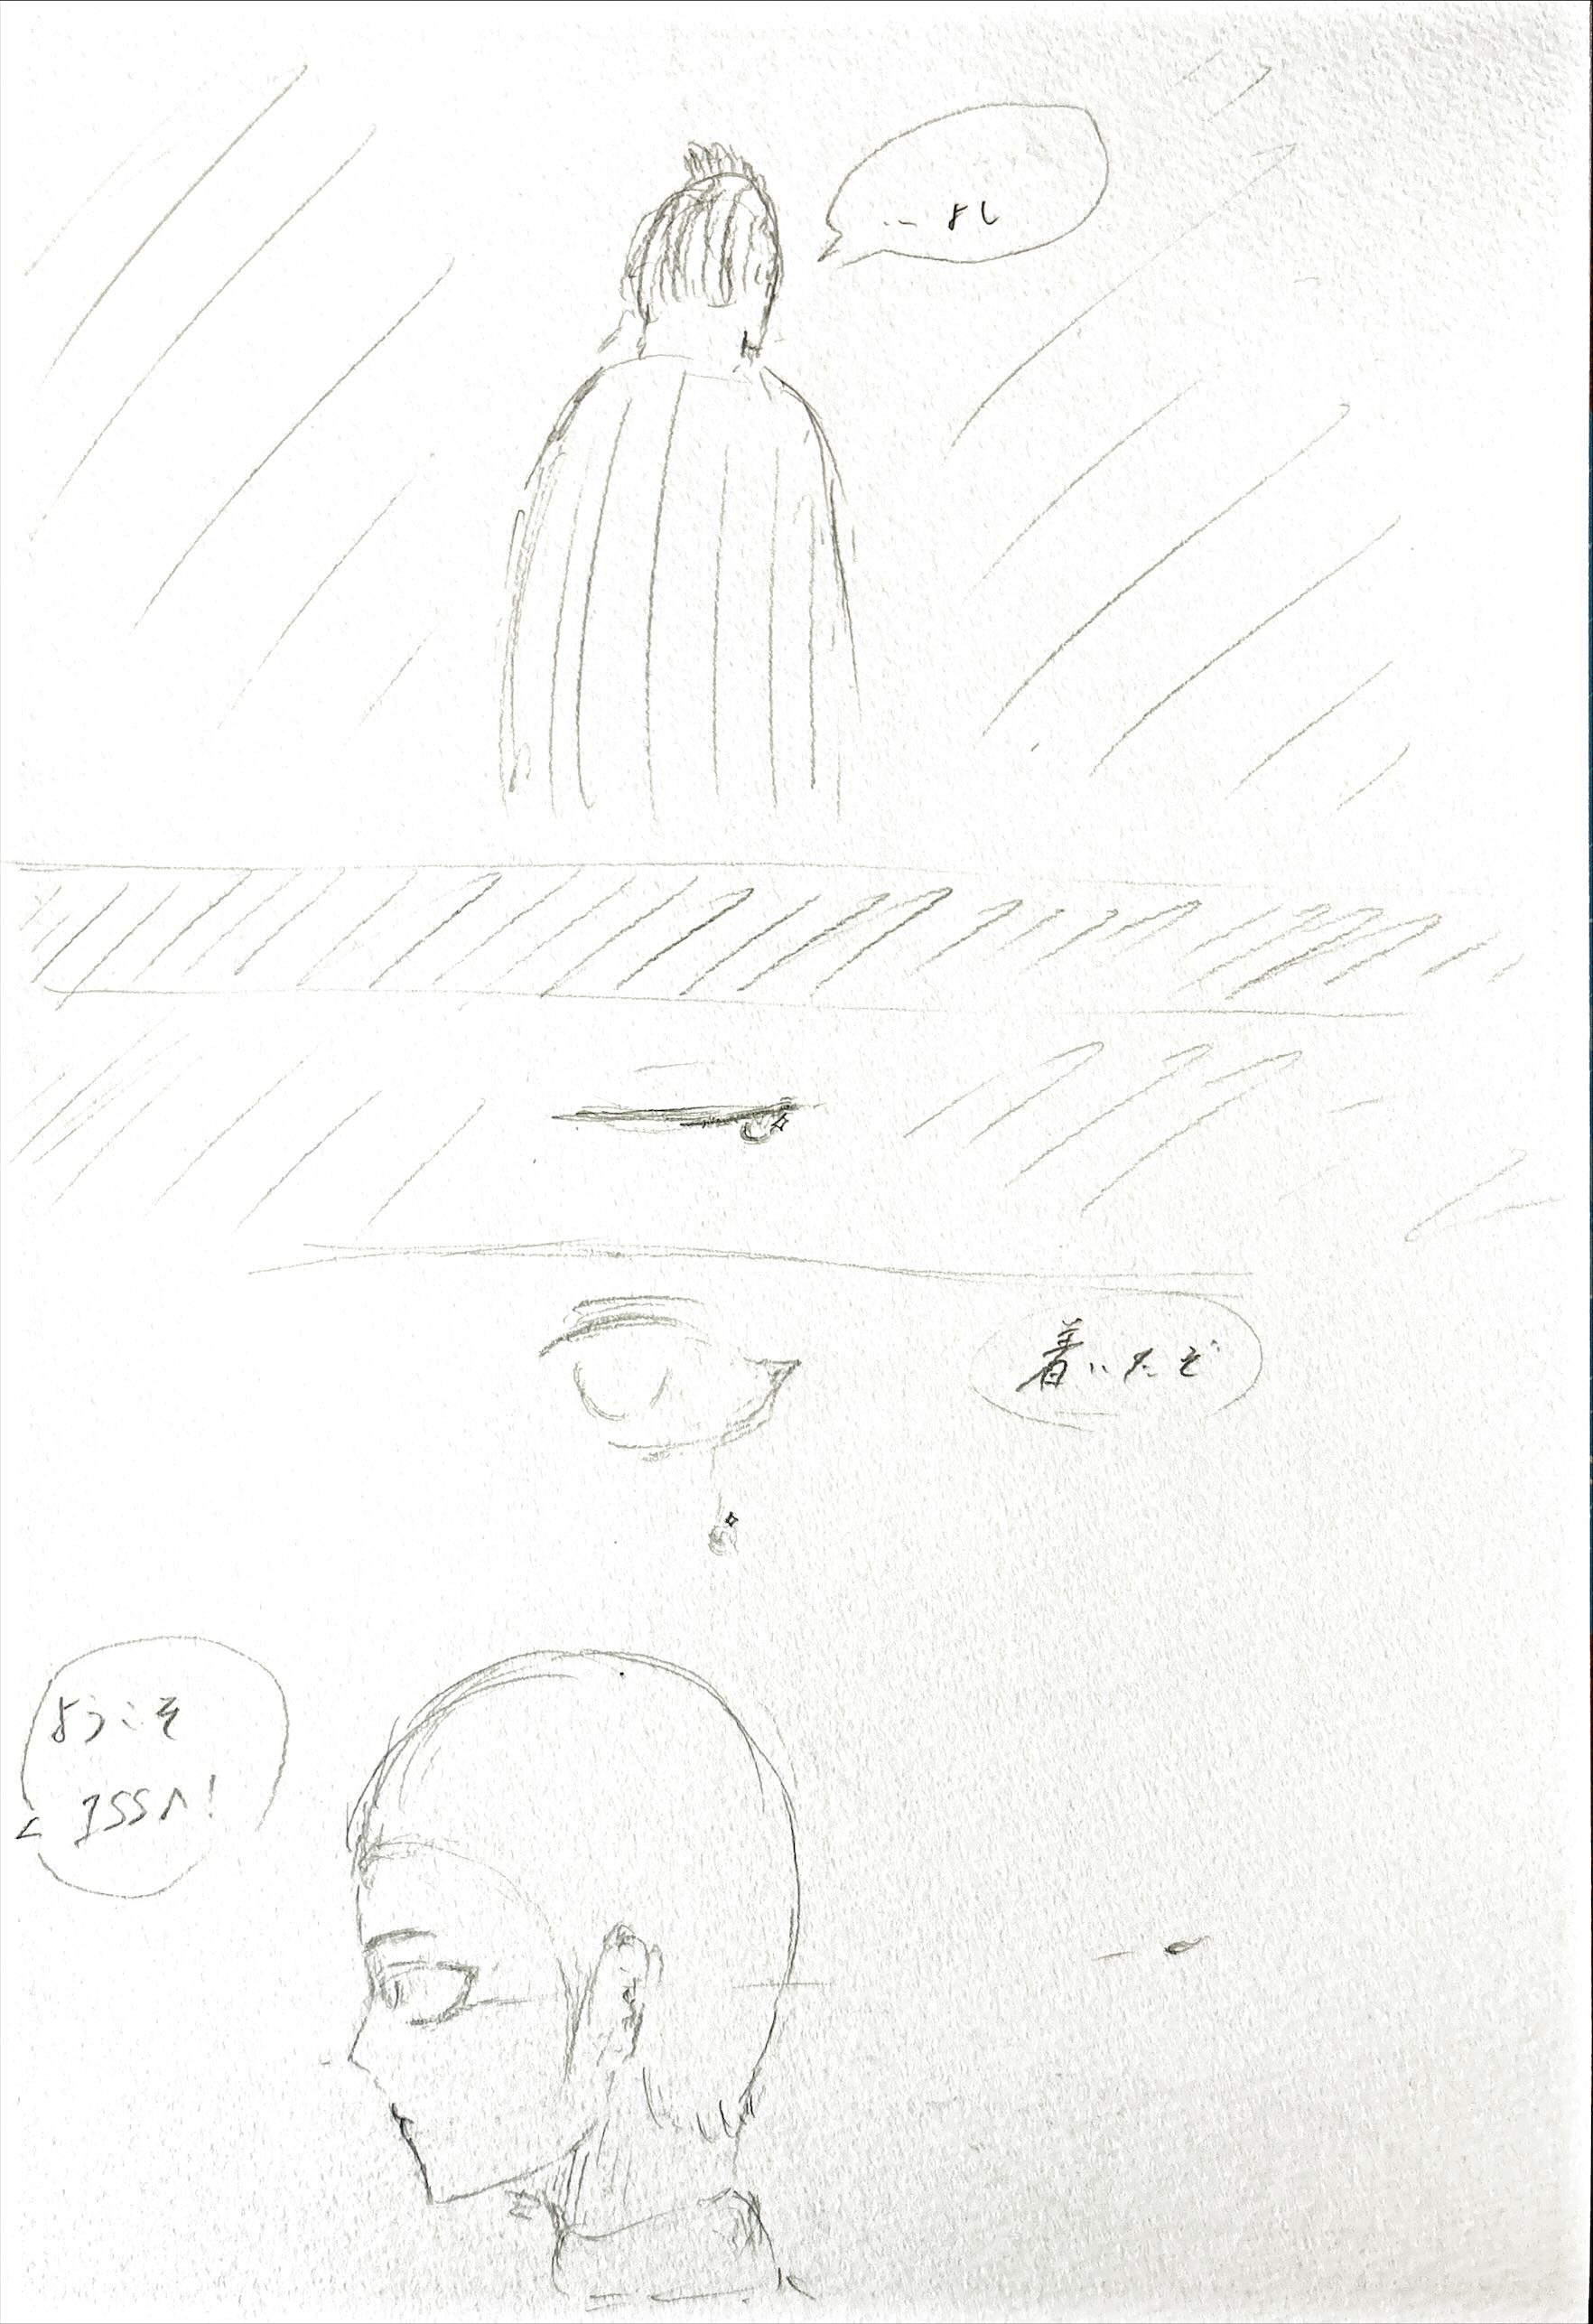 …よし
着いたぞ
ようこそ
ISSへ!